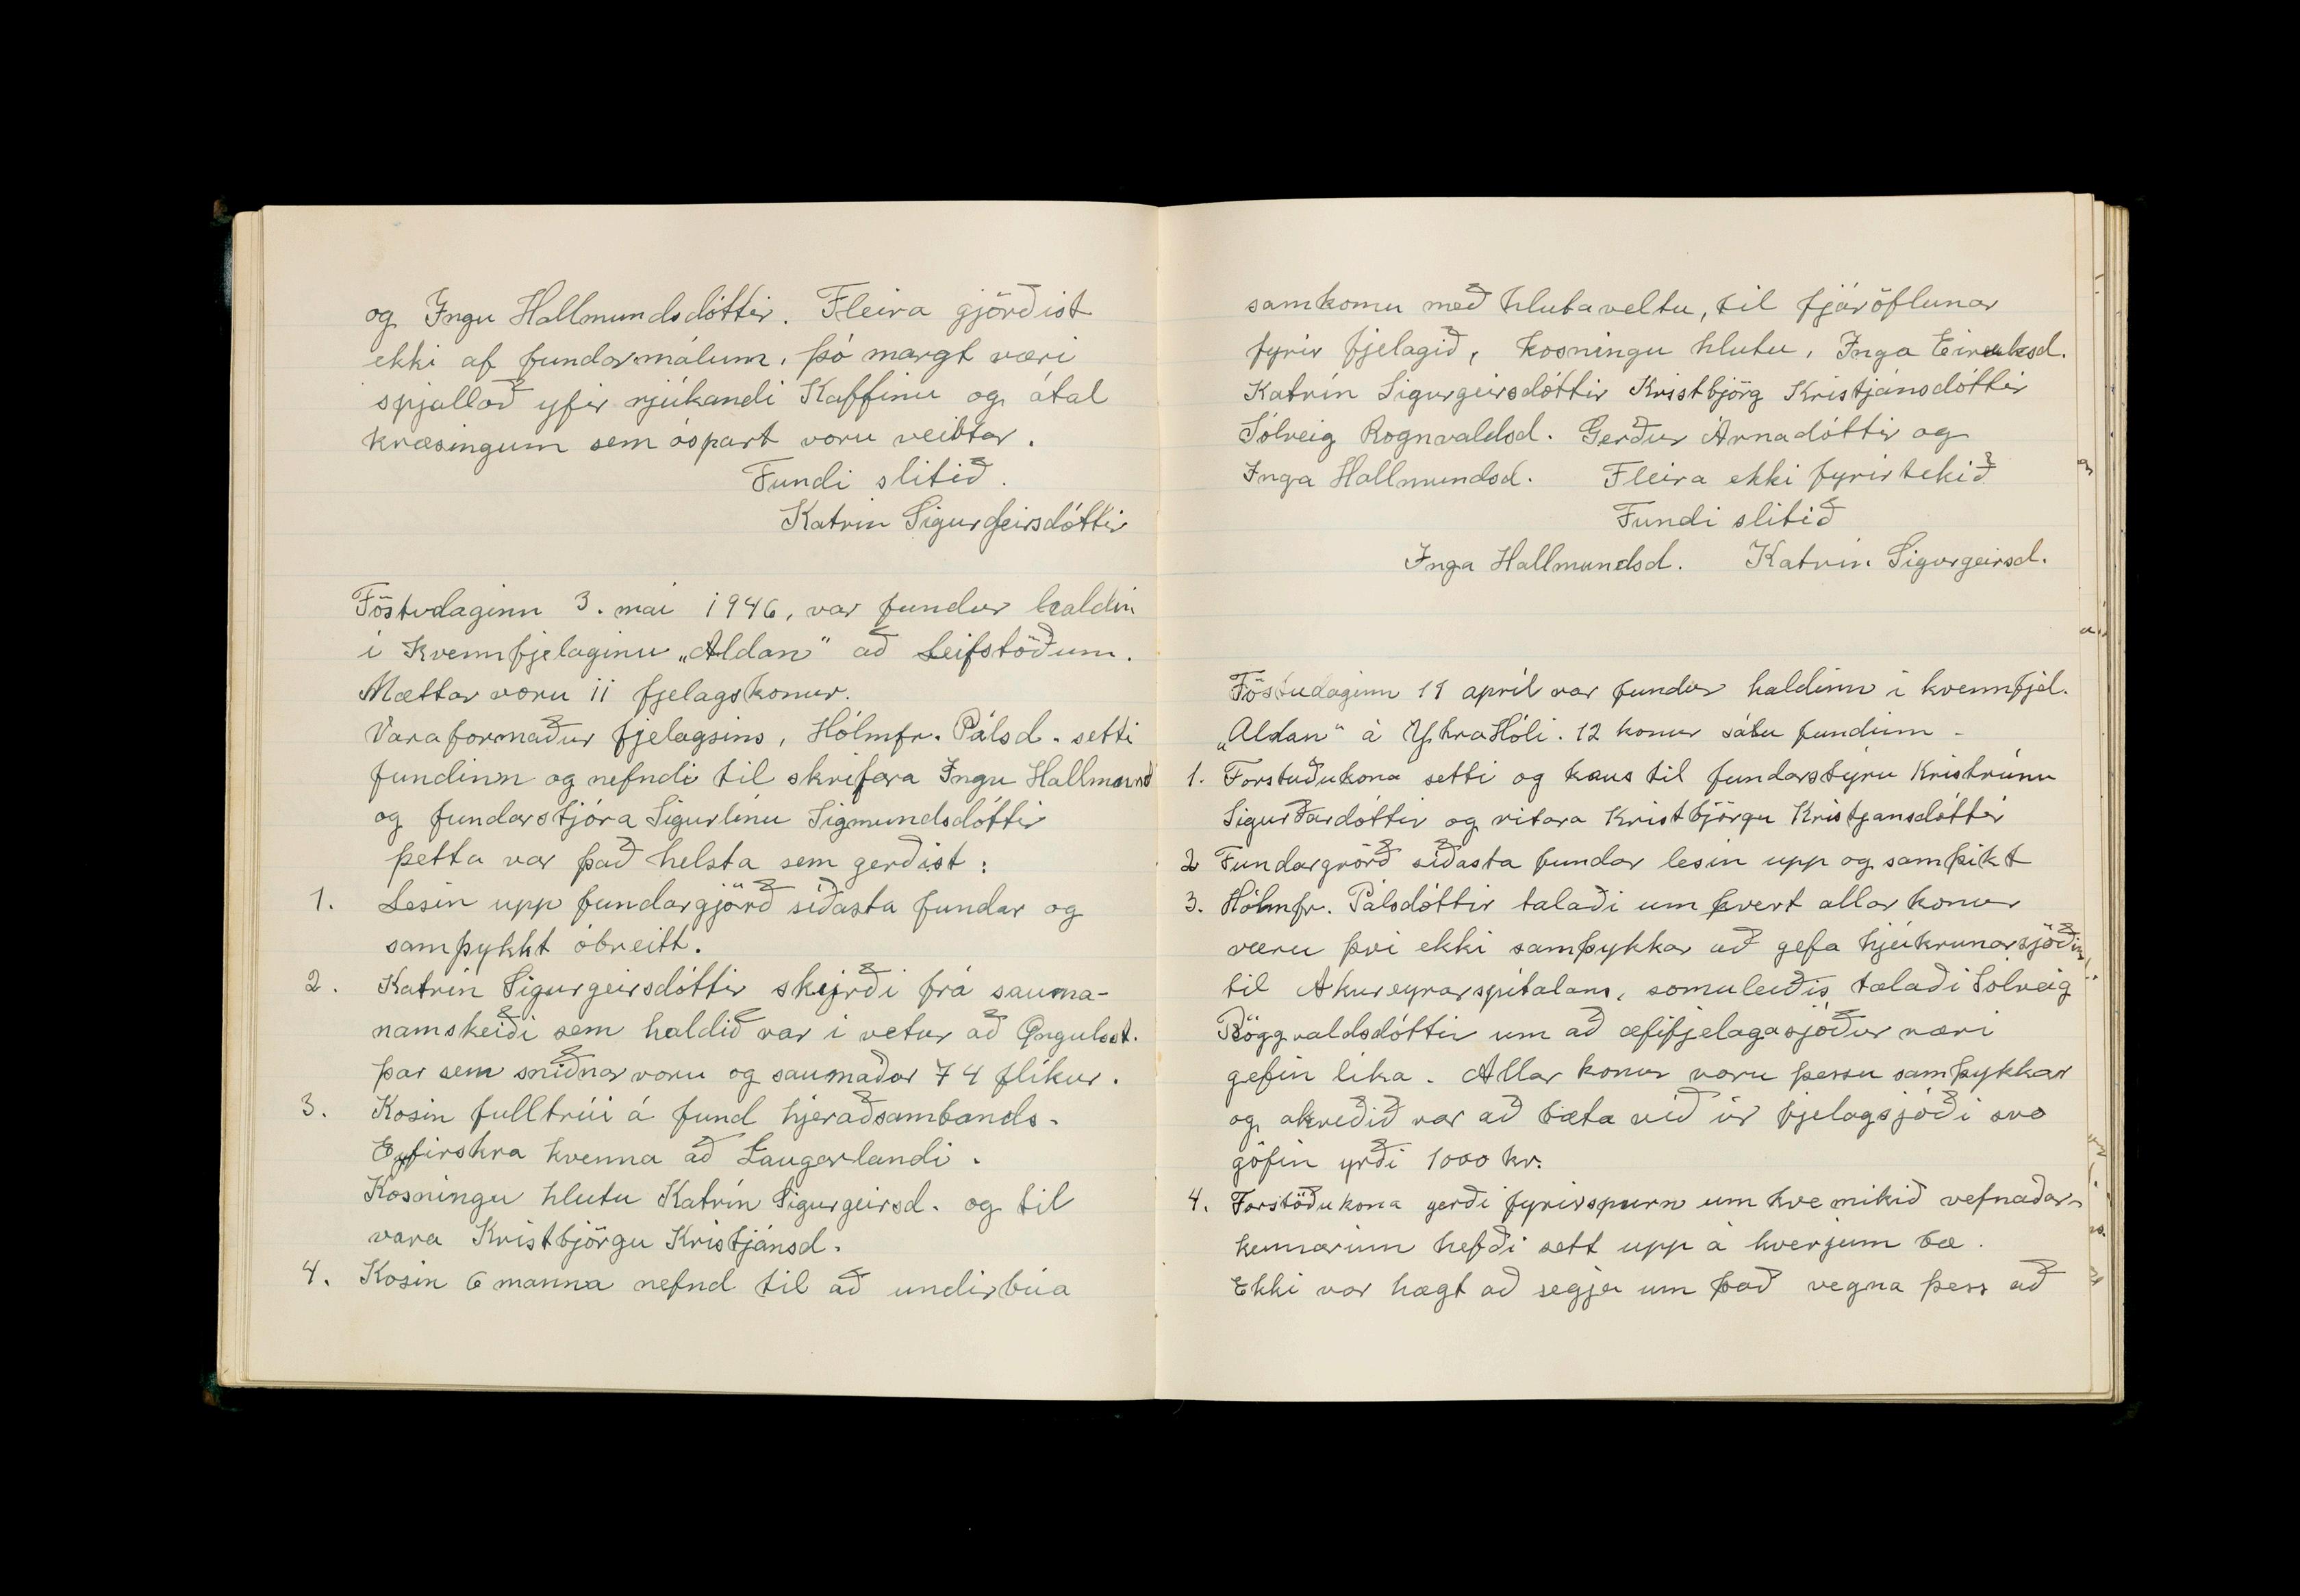 og Ingu Hallmundsdóttir. Fleira gjörðist
ekki af fundarmálum, þó margt væri
spjallað yfir rjúkandi Kaffinu og ótal
kræsingum sem óspart voru veittar.
Fundi slitið.
Katrín Sigurgeirsdóttir
Föstudaginn 3. mai 1946, var fundur haldin
í Kvennfjelaginu „Aldan" að Leifstöðum.
Mættar voru 11 fjelagskonur.
Varaformaður fjelagsins, Hólmfr. Pálsd. setti
fundinn og nefndi til skrifara Ingu Hallmund
og fundarstjóra Sigurlínu Sigmundsdóttir
þetta var það helsta sem gerðist:
1. Lesin upp fundargjörð síðasta fundar og
samþykkt óbreitt.
2. Katrín Sigurgeirsdóttir skýrði frá sauma-
namskeiði sem haldið var í vetur að Öngulsst.
þar sem sniðnar voru og saumaðar 74 flíkur.
3. Kosin fulltrúi á fund hjeraðsambands-
Eyfirskra kvenna að Laugarlandi.
Kosningu hlutu Katrín Sigurgeirsd. og til
vara Kristbjörgu Kristjánsd.
4. Kosin 6 manna nefnd til að undirbúa
samkomu með hlutaveltu, til fjáröflunar
fyrir fjelagið, kosningu hlutu, Inga Eireksd.
Katrín Sigurgeirsdóttir Kristbjörg Kristjánsdóttir
Sólveig Rognvaldsd. Gerður Árnadóttir og
Inga Hallmundsd. Fleira ekki fyrirtekið
Fundi slitið
Inga Hallmundsd. Katrín Sigurgeirsd.
Föstudaginn 11 apríl var fundur haldinn í kvennfjel.
„Aldan" á Ytra Hóli. 12 konur sátu fundinn.
1. Forstuðukona setti og kaus til fundarstýru Kristrúnu
Sigurðardóttir og ritara Kristbjörgu Kristjansdóttir
2 Fundargrörð síðasta fundar lesin upp og samþikt
3. Hólmfr. Pálsdóttir talaði um hvert allar konur
væru því ekki samþykkar að gefa hjúkrunarsjóðin
til Akureyrarspítalans, somuleiðis talaði Sólveig
Röggvaldsdóttir um að æfifjelagasjóður væri
gefin líka. Allar konur voru þessu samþykkar
og akveðið var að bæta við úr fjelagsjóði svo
göfin yrði 1000 kr.
4. Forstöðukona gerði fyrirspurn um hve mikið vefnaðar-
kennarinn hefði sett upp á hverjum bæ.
Ekki var hægt að segja um það vegna þess að